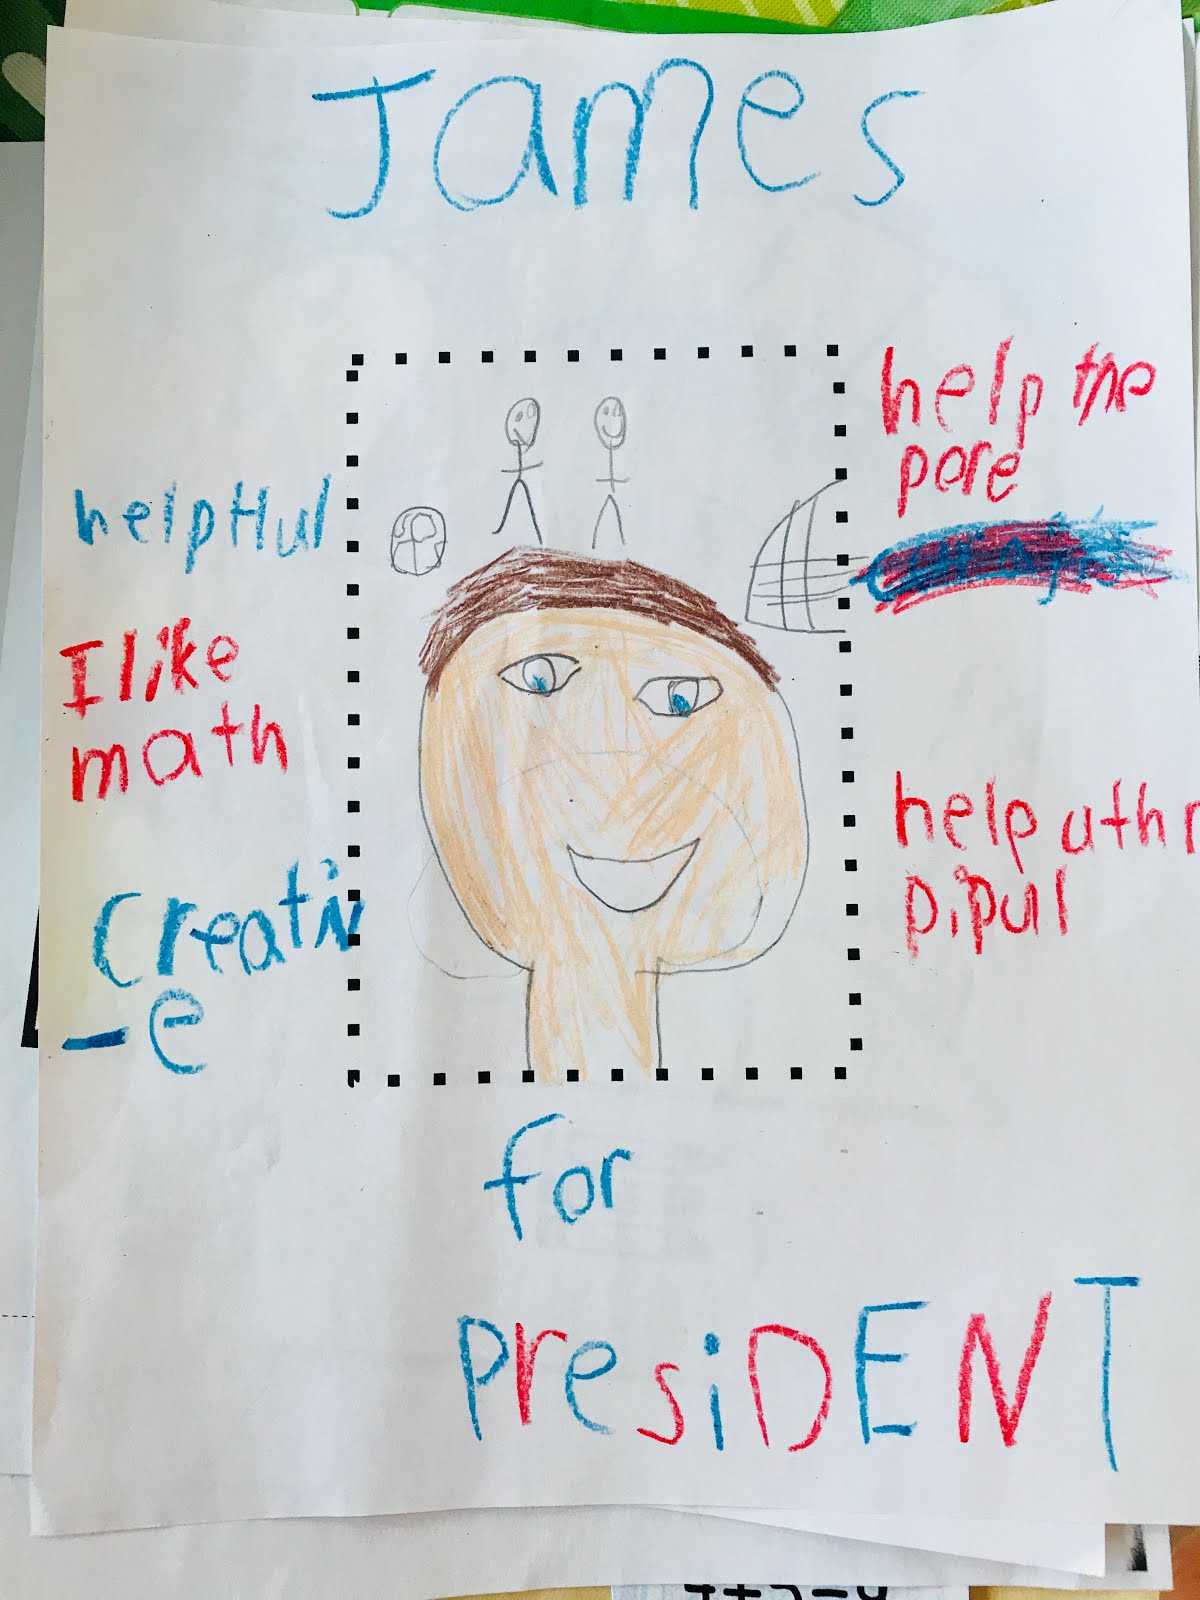 James
helpful
I like
math
Creativ
-e
help the
pore
help uthr
pipul
for
PresiDENT